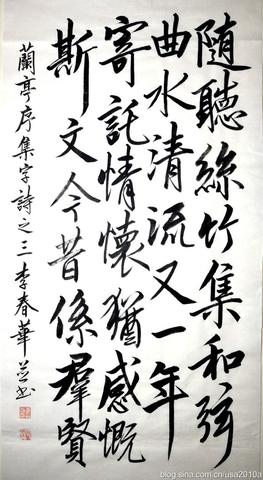 随聽絲竹集和弦
曲水清流又一年
寄託情懷猶感慨
斯文今昔係羣賢
蘭亭序集字詩之三李春華並书
blog.sina.com.cn/usa2010a